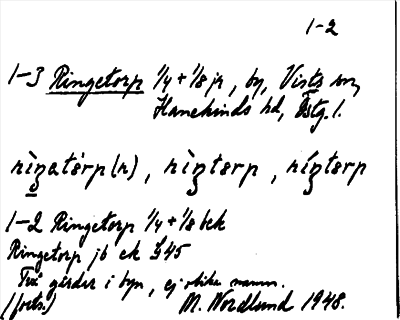 1-2
1-3 Ringetorp 1/4 + 1/8 jr, by, Vists sn,
Hanekinds hd, Östg. l.
rìŋatórp(n), rìŋtorp, ríŋtorp
1-2 Ringetorp 1/4 + 1/8 bek
Ringetorp jb ek § 45
Två gårdar i byn, ej olika namn.
(forts.) M. Nordlund 1948.